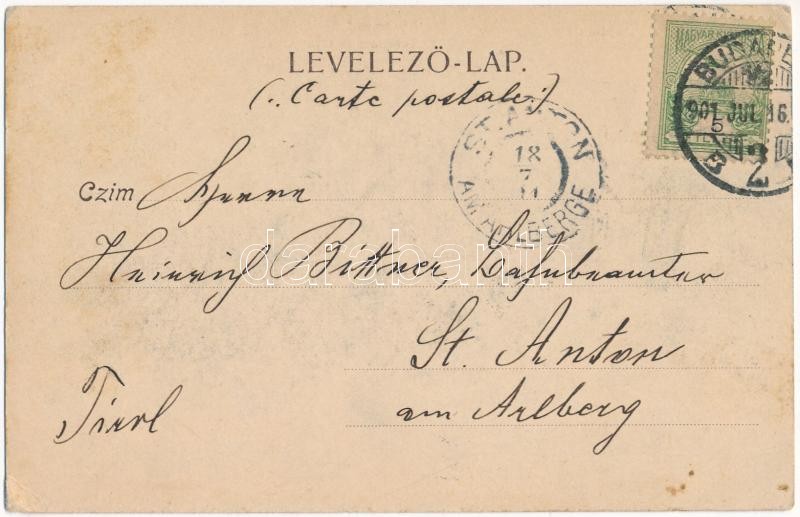 LEVELEZŐ-LAP.
(„Carte postale.")
MAGYAR KIR. POSTA
BUDAPE
901 JUL 16
5
2
ST. ANTON
18
7
AM ARLBERGE
Czim Herrn
Heinrich Bittner, Bahnbeamter
St. Anton
am Arlberg
Tirol
darabanth